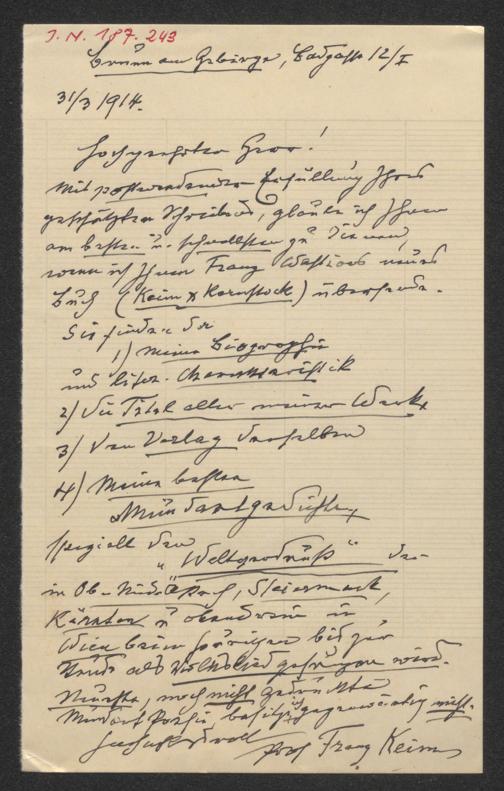 J. N. 187.243
Brunn am Gebirge, Badgasse 12/I
31/3 1914.
Hochgeehrter Herr!
Mit postwendender Erfüllung Ihres
geschätzten Schreibens, glaube ich Ihnen
am besten u. schnellsten zu dienen,
wenn ich Ihnen Franz neues
Buch (Keim & Kernstock) übersende.
Sie finden da
1) meine Biographie
und liter. Charakteristik
2) die Titel aller meiner Werke
3) den Verlag derselben
4) Meine besten
Mundartgedichte,
speziell den
"Weltverdruß" der
in Ob. u. Niederöster., Steiermark,
Kärnten u. ebenso in
Wien beim bis zur
Stunde als Volkslied gesungen wird.
Neueste, noch nicht gedruckte
Mundart Poesie, besitze ich gegenwärtig nicht.
Hochachtungsvoll
Prof Franz Keim